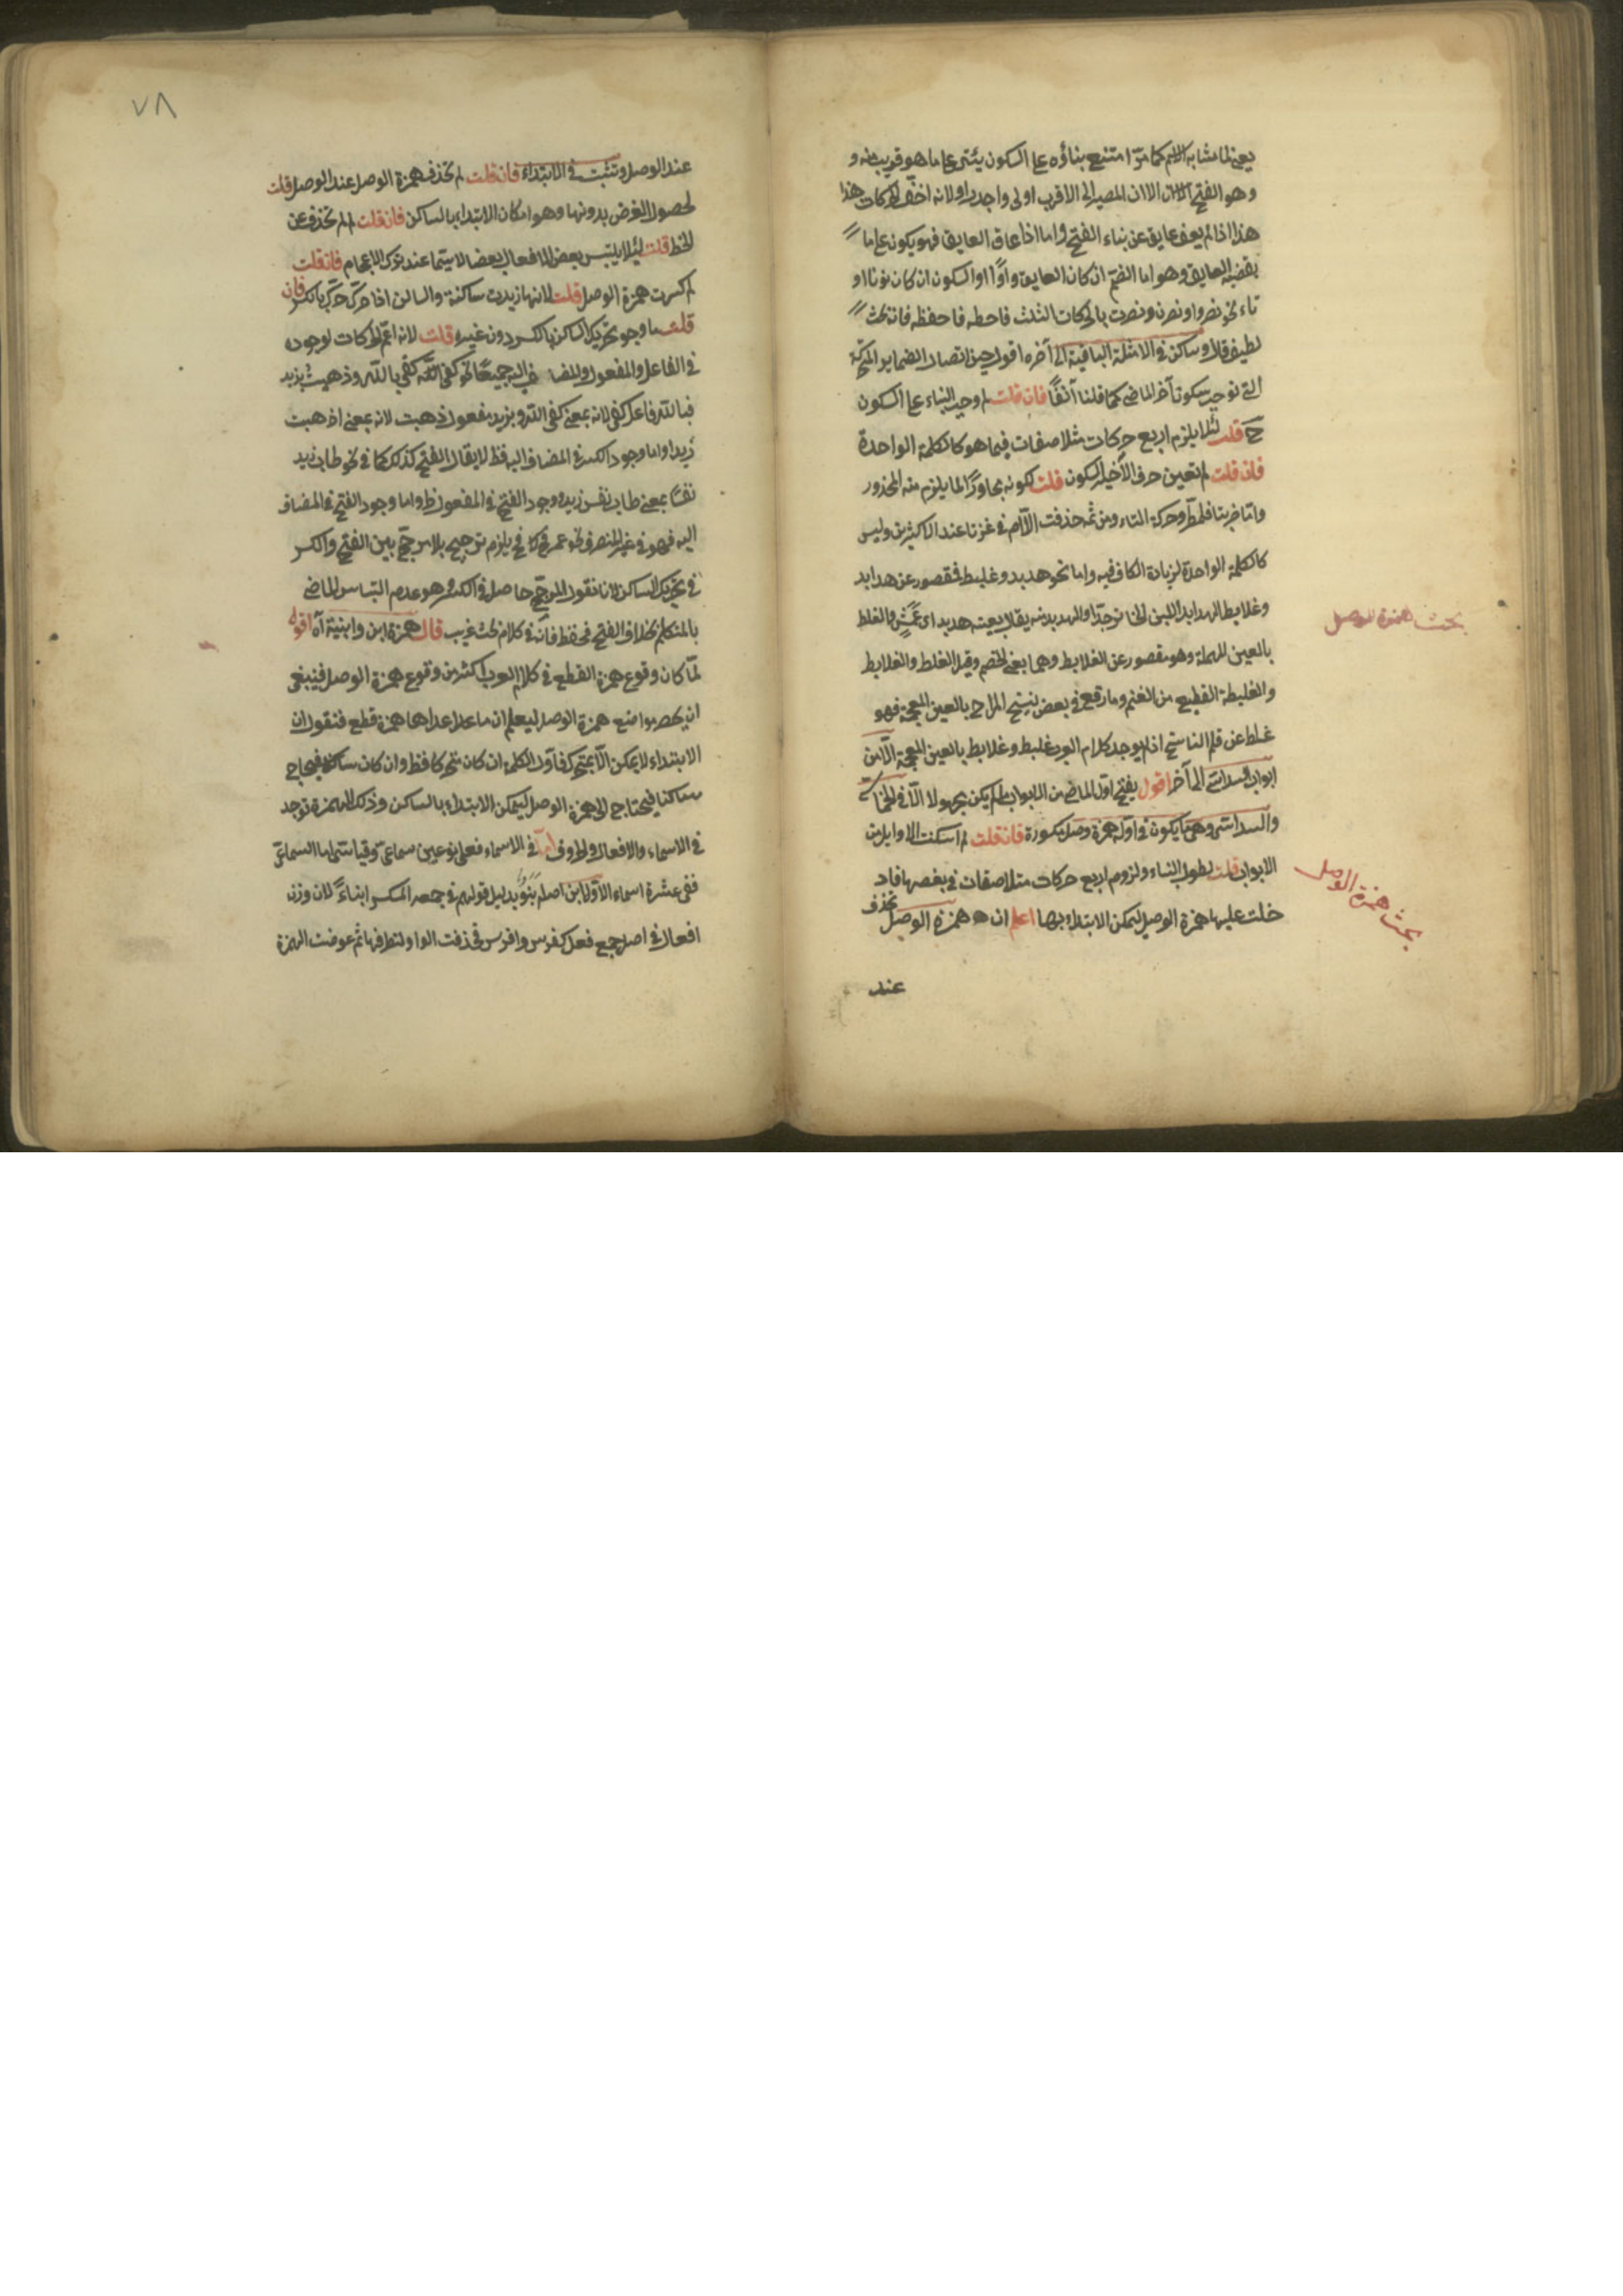 يعني لما مشابه الاسم كما مر امتنع بناؤه على السكون يبنى على ما هو قريب منه و
وهو الفتح لان المصير الى الاقرب اولى واجدر او لانه اخف الحركات هذا
هذا اذا لم يعق عايق عن بناء الفتح واما اذا عاق العايق فهو يكون على ما
يقضيه العايق وهو اما الضم ان كان العايق واوًا او السكون ان كان نونا او
تاء نحو نصروا ونصرن ونصرت بالحركات الثلث فاحطه فاحفظه فانه بحث
لطيف قال وساكن في الامثلة الباقية الى آخره اقول حين اتصال الضماير المتحركة
التي توجب سكون آخر الماضي كما قلنا آنفًا فان قلت لم وجب البناء على السكون
ح قلت لئلا يلزم اربع حركات متلاصقات فيما هو كالكلمة الواحدة
فان قلت لم تعين حرف الأخير للسكون قلت لكونه مجاورًا لما يلزم منه المحذور
واما ضربتا فلطرو حركة التاء ومن ثم حذفت الالف في غزتا عند الاكثرين وليس
كالكلمة الواحدة لزيادة الكاف فيه واما نحو هدبد وغلبط فقصور عن هدابد
وغلابط الهدابد اللبن الخاثر جدًا والهدبد منه يقال بعينه هدبد اى عمش والغلبط
بالعين المهملة وهو مقصور عن الغلابط وهما بمعنى الضخم وقيل الغلبط والغلابط
والغليطة القطيع من الغنم وما رقع في بعض نسخ المراح بالغين المعجمة فهو
غلط عن قلم الناسخ اذ لم يوجد كلام العرب غلبط وغلابط بالغين المعجمة الا من
ابواب السداسى الى آخره اقول يفتح اول الماضي من الابواب لم يكن مجهولا الا في الخماسى
والسداسى وهى ما يكون في اوله همزة وصل مكسورة فان قلت لم اسكنت الاوايل من
الابواب قلت لطول البناء ولزوم اربع حركات متلاصقات في بعضها فاد
خلت عليها همزة الوصل ليمكن الابتداء بها اعلم ان همزة الوصل تحذف
عند
بحث همزة الوصل
بحث همزة الوصل
٧٨
عند الوصل وتثبت في الابتداء فان قلت لم تحذف همزة الوصل عند الوصل قلت
لحصول الغرض بدونها وهو امكان الابتداء بالساكن فان قلت لم لم تحذف عن
الخط قلت لئلا يلتبس بعض الافعال ببعض لا سيما عند ترك الاعجام فان قلت
لم كسرت همزة الوصل قلت لانها زيدت ساكنة والساكن اذا حرك حرك بالكسر فان
قلت ما وجه تحريك الساكن بالكسر دون غيره قلت لانه اعم الحركات لوجوده
في الفاعل والمفعول والمضاف اليه جميعًا نحو كفى الله كفى بالله وذهبت بزيد
فبالله فاعل كفى لانه بمعنى كفى الله وبزيد مفعول ذهبت لانه بمعنى اذهبت
زيدا واما وجود الكسر في المضاف اليه فظ لا يقال الفتح كذلك كما في نحو طاب زيد
نفسًا بمعنى طاب نفس زيد ووجود الفتح في المفعول ظ واما وجود الفتح في المضاف
اليه فهو في غير المنصرف نحو عمر فح يلزم ترجيح بلا مرجح بين الفتح والكسر
في تحريك الساكن لانا نقول المرجح حاصل في الكسر وهو عدم التباس الماضي
بالمتكلم بخلاف الفتح فحفظ فانه في كلام بحث غريب قال همزة ابن وابنية آه اقول
لما كان وقوع همزة القطع في كلام العرب اكثر من وقوع همزة الوصل فينبغي
ان يحصر مواضع همزة الوصل ليعلم ان ما عداها همزة قطع فنقول ان
الابتداء لا يمكن الا بمتحرك فاول الكلمة ان كان متحركا فظ وان كان ساكنا فيحتاج
ساكنا فيحتاج الى همزة الوصل ليمكن الابتداء بالساكن وذلك الهمزة توجد
في الاسماء والافعال والحروف اما في الاسماء فعلى نوعين سماعى وقياسى اما السماعى
ففي عشرة اسماء الاول ابن اصله بنو بدليل قولهم في جمعه المكسر ابناءً لان وزن
افعال في اصل جمع فعل كفرس وافرس فحذفت الواو لتطرفها ثم عوضت الهمزة